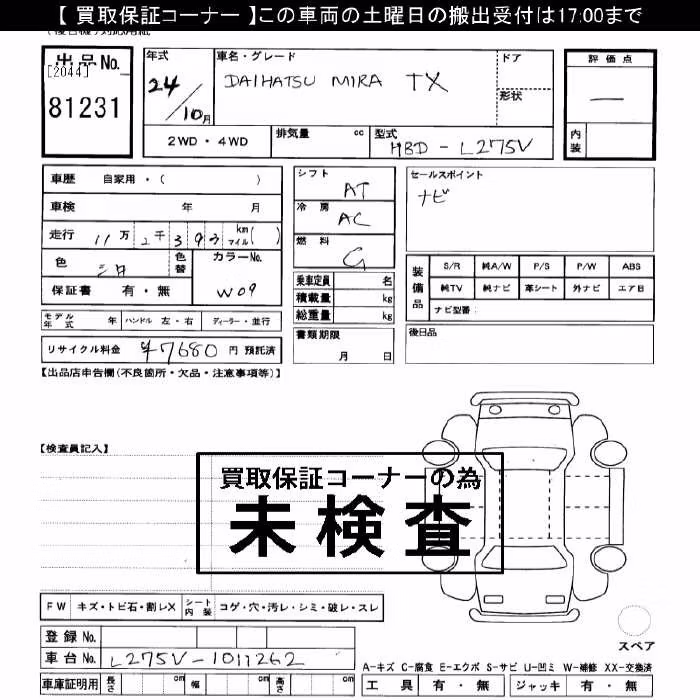 【 買取保証コーナー 】この車両の土曜日の搬出受付は17:00まで
出品No.
[2044]
81231
年式
24/10月
車名・グレード
DAIHATSU MIRA TX
ドア
形状
評価点
—
内装
2WD・4WD
排気量 cc
型式
HBD-L275V
車歴 自家用・( )
車検 年 月
走行 11万2千393 km マイル( )
色 シロ
色替
カラーNo.
W09
保証書 有・無
モデル年式 年 ハンドル 左・右 ディーラー・並行
リサイクル料金 ¥7680 円 預託済
シフト AT
冷房 AC
燃料 G
乗車定員 名
積載量 kg
総重量 kg
書類期限
月 日
セールスポイント
ナビ
装備品
S/R 純A/W P/S P/W ABS
純TV 純ナビ 革シート 外ナビ エアB
ナビ型番:
後日品
【出品店申告欄(不良箇所・欠品・注意事項等)】
【検査員記入】
買取保証コーナーの為
未検査
FW キズ・トビ石・割レX シート内装 コゲ・穴・汚レ・シミ・破レ・スレ
登録No.
車台No. L275V-1011262
車庫証明用 長さ cm 幅 cm 高さ cm
スペア
A-キズ C-腐食 E-エクボ S-サビ U-凹ミ W-補修 XX-交換済
工具 有・無 ジャッキ 有・無